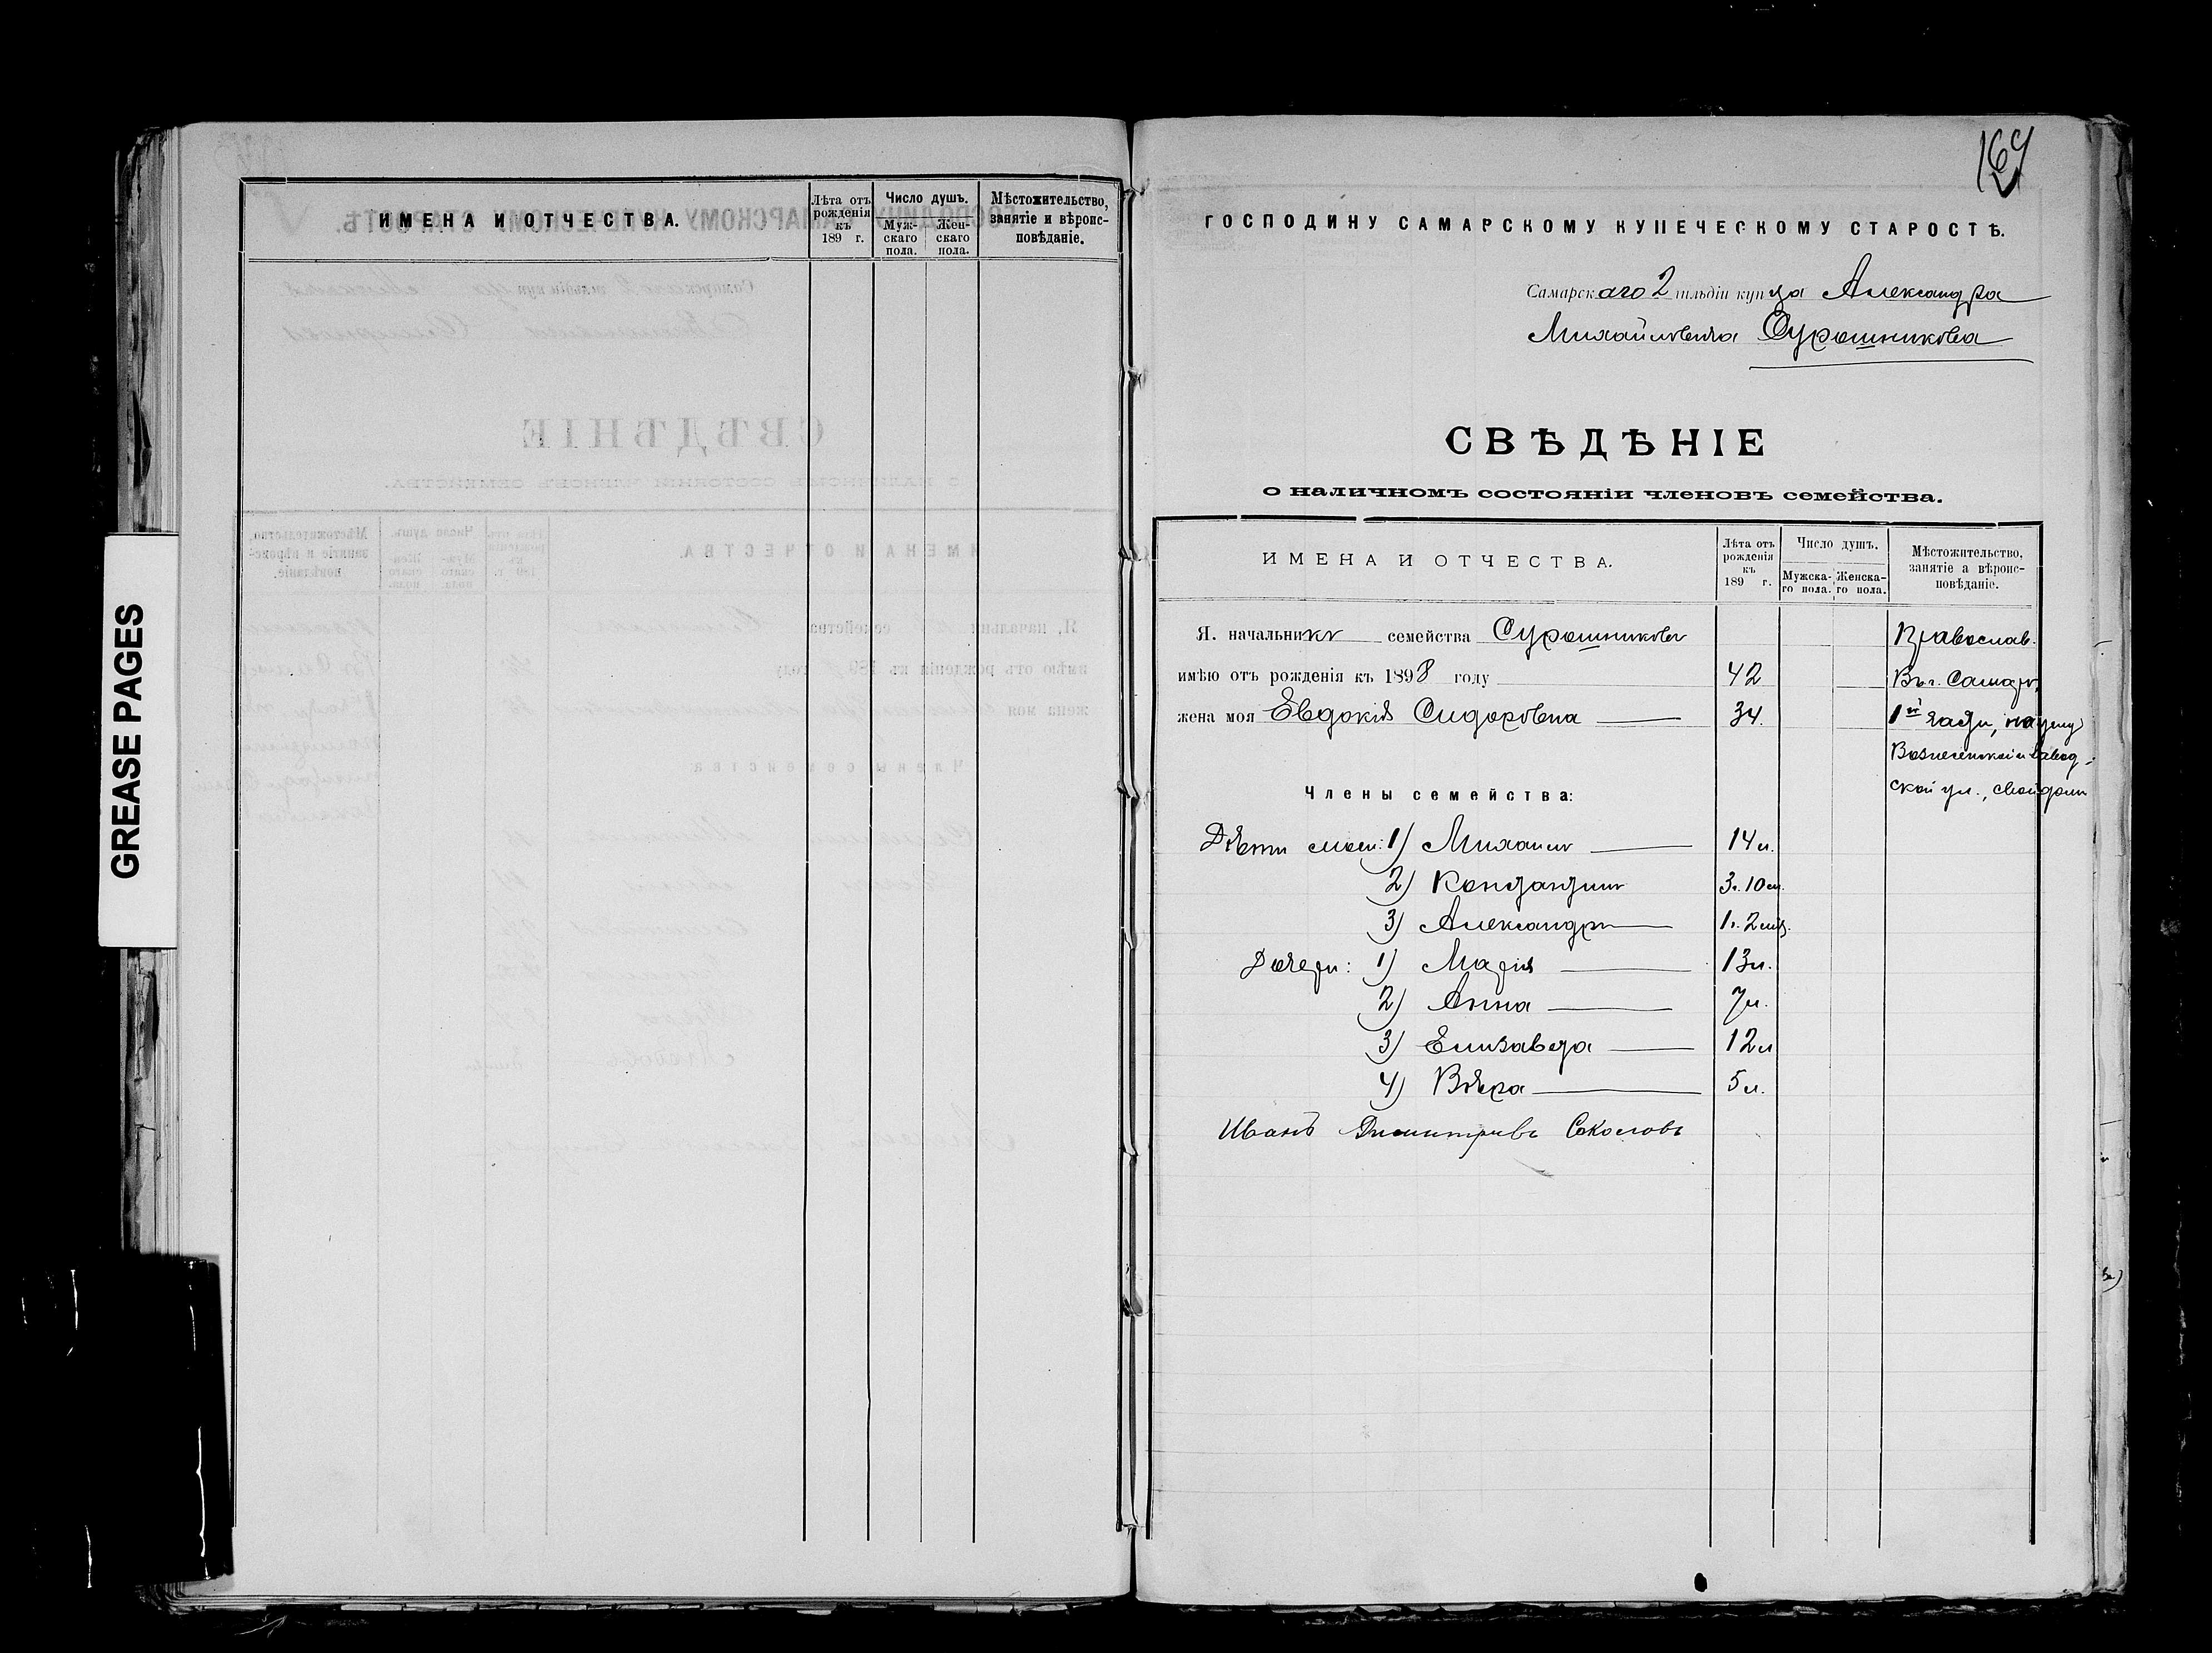 GREASE PAGES
ИМЕНА И ОТЧЕСТВА.
Лѣта отъ рожденія къ 189 г.
Число душъ.
Мужскаго пола.
Женскаго пола.
Мѣстожительство, занятіе и вѣроисповѣданіе.
ГОСПОДИНУ САМАРСКОМУ КУПЕЧЕСКОМУ СТАРОСТѢ.
Самарскаго 2 гильдіи купца Александра
Михайловича Сурошникова
СВѢДѢНІЕ
о наличномъ состояніи членовъ семейства.
ИМЕНА И ОТЧЕСТВА.
Лѣта отъ рожденія къ 189 г.
Число душъ.
Мужскаго пола.
Женскаго пола.
Мѣстожительство, занятіе а вѣроисповѣданіе.
Я. начальникъ семейства Сурошниковъ Православ.
имѣю отъ рожденія къ 1898 году 42 Въ г. Самарѣ,
жена моя Евдокія Сидоровна 34. 1й части, на углу
Вознесенской и Завод-
ской ул., свой домъ
Члены семейства:
Дѣти мои: 1) Михаилъ 14 л.
2) Константинъ 3 г. 10 м.
3) Александръ 1 г. 2 мѣс.
Дочери: 1) Марія 13 л.
2) Анна 7 л.
3) Елизавета 12 л
4) Вѣра 5 л.
Иванъ Димитріевъ Соколовъ